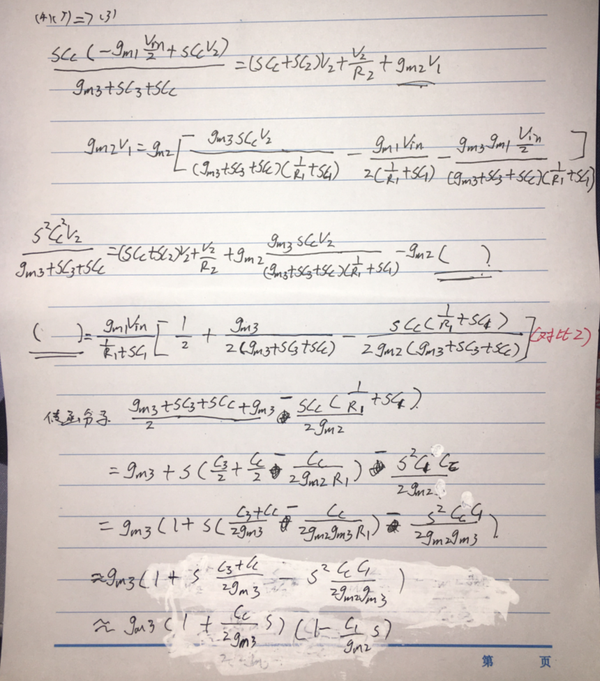 (4)(7)=>(3)
sCc(-gm1 Vin/2 + sCcV2) / (gm3+sC3+sCc) = (sCc+sC2)V2 + V2/R2 + gm2V1
gm2V1 = gm2[ gm3sCcV2 / ((gm3+sC3+sCc)(1/R1+sC1)) - gm1Vin / (2(1/R1+sC1)) - gm3gm1 Vin/2 / ((gm3+sC3+sCc)(1/R1+sC1)) ]
s²Cc²V2 / (gm3+sC3+sCc) = (sCc+sC2)V2 + V2/R2 + gm2 gm3sCcV2 / ((gm3+sC3+sCc)(1/R1+sC1)) - gm2( )
( ) = gm1Vin / (1/R1+sC1) [ 1/2 + gm3 / (2(gm3+sC3+sCc)) - sCc(1/R1+sC1) / (2gm2(gm3+sC3+sCc)) ] (对比2)
传函分子 (gm3+sC3+sCc+gm3) / 2 - sCc(1/R1+sC1) / 2gm2
= gm3 + s(C3/2 + Cc/2 - Cc/(2gm2R1)) - s²C1Cc / 2gm2
= gm3(1 + s((C3+Cc)/2gm3 - Cc/(2gm2gm3R1)) - s²CcC1 / 2gm2gm3)
≈ gm3(1 + s (C3+Cc)/2gm3 - s² CcC1/2gm2gm3)
≈ gm3(1 + Cc/2gm3 s)(1 - C1/gm2 s)
第 页